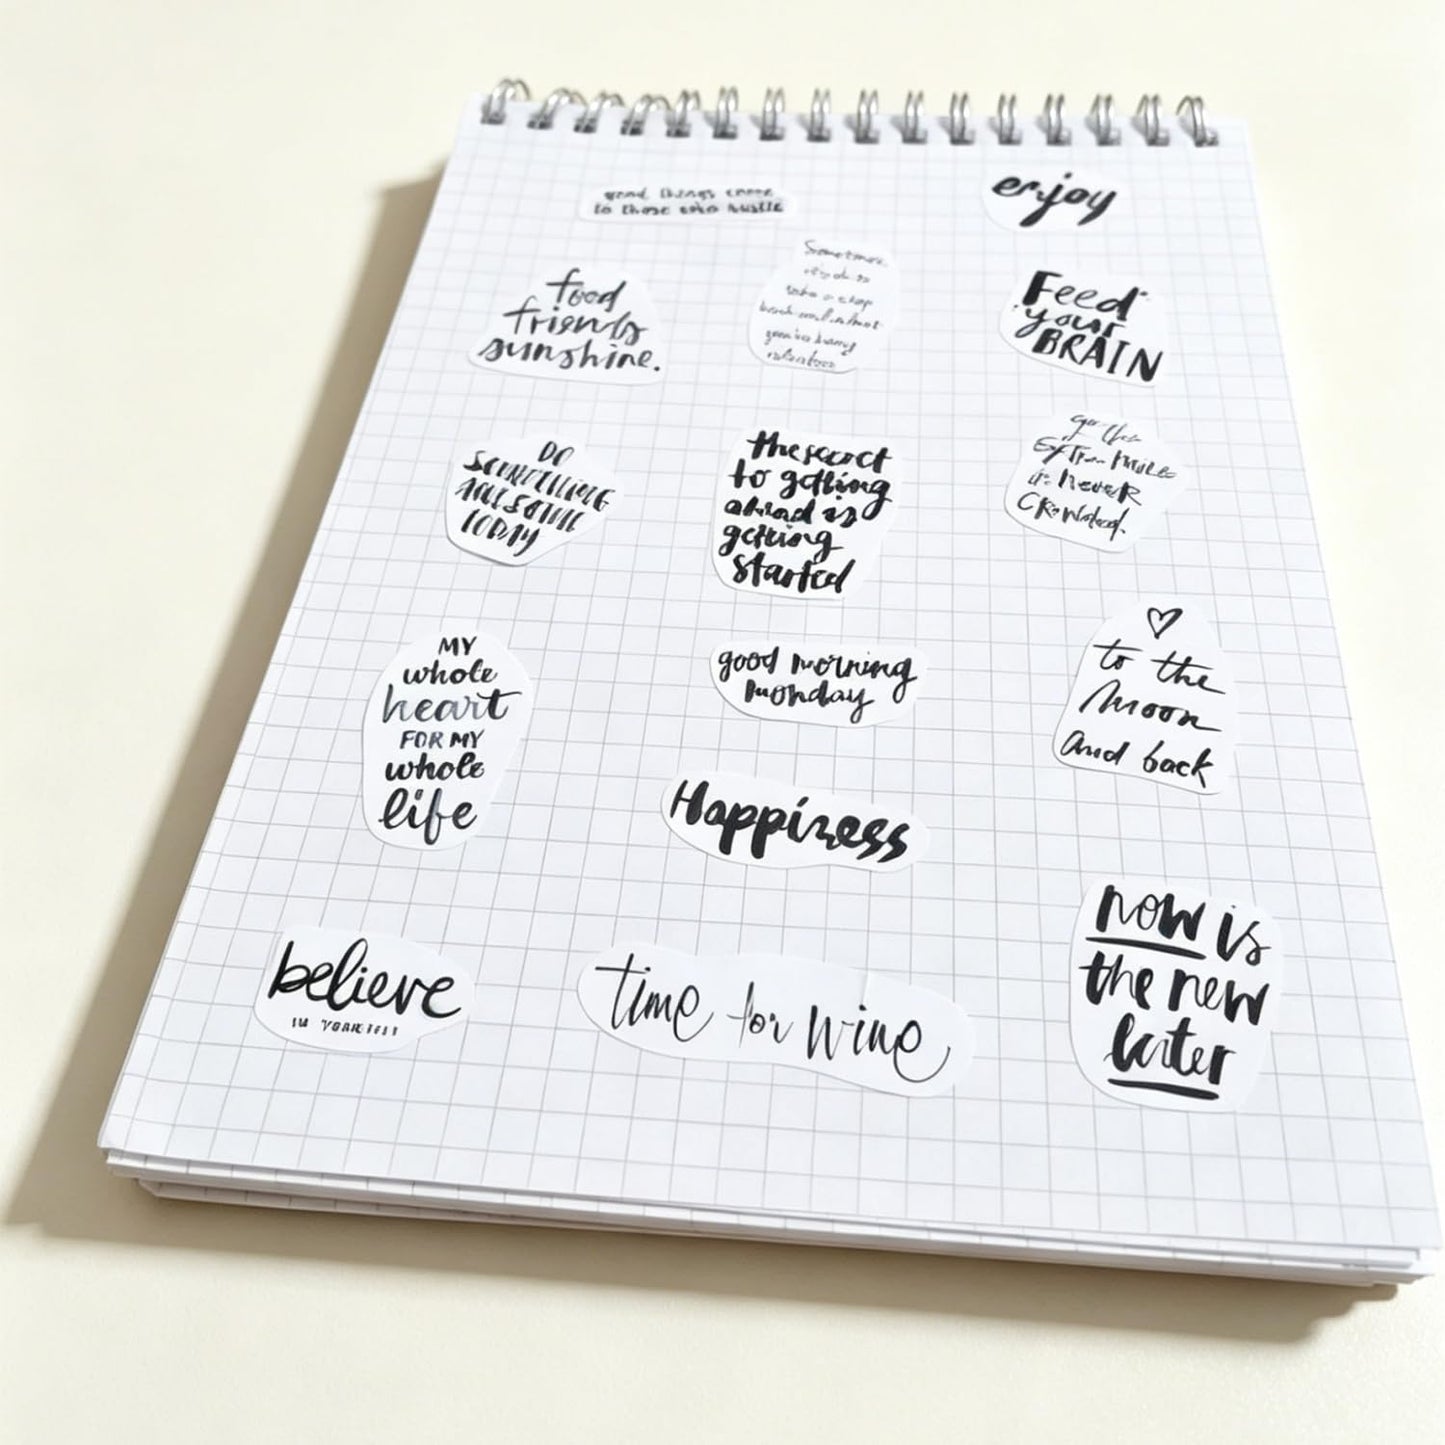 good things come
to those who hustle
enjoy
food
friends
sunshine.
Sometimes
Feed
your
BRAIN
DO
SOMETHING
AWESOME
TODAY
the secret
to getting
ahead is
getting
started
go the
EXTRA MILE
it's never
CROWDED.
MY
whole
heart
FOR MY
whole
life
good morning
monday
to the
moon
and back
Happiness
believe
IN YOURSELF
time for wine
now is
the new
later